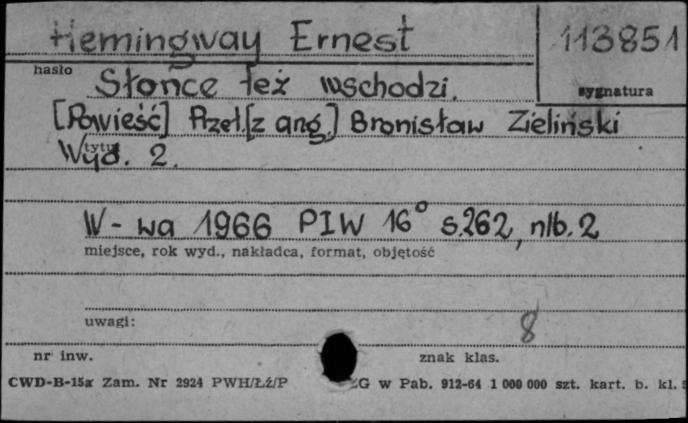 Hemingway Ernest 113851
hasło sygnatura
Słońce też wschodzi.
[Powieść] Przeł. [z ang.] Bronisław Zieliński
tytuł
Wyd. 2.
W-wa 1966 PIW 16° s. 262, nlb. 2
miejsce, rok wyd., nakładca, format, objętość
uwagi: 8
nr inw. znak klas.
CWD-B-15a Zam. Nr 2924 PWH/Łź/P ZG w Pab. 912-64 1 000 000 szt. kart. b. kl.